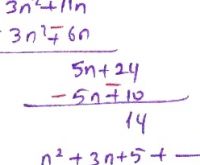 3n²+11n
3n²+6n
5n+24
- 5n+10
14
n²+3n+5+—